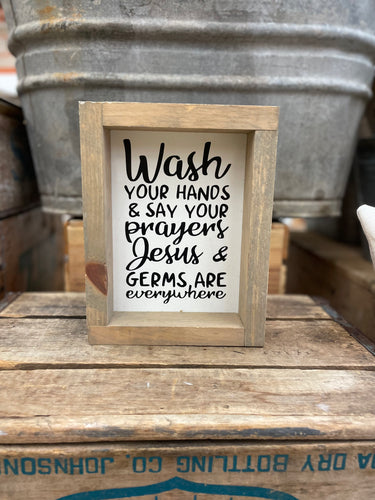 Wash
YOUR HANDS
& SAY YOUR
prayers
Jesus &
GERMS ARE
everywhere
A DRY BOTTLING CO. JOHNSON